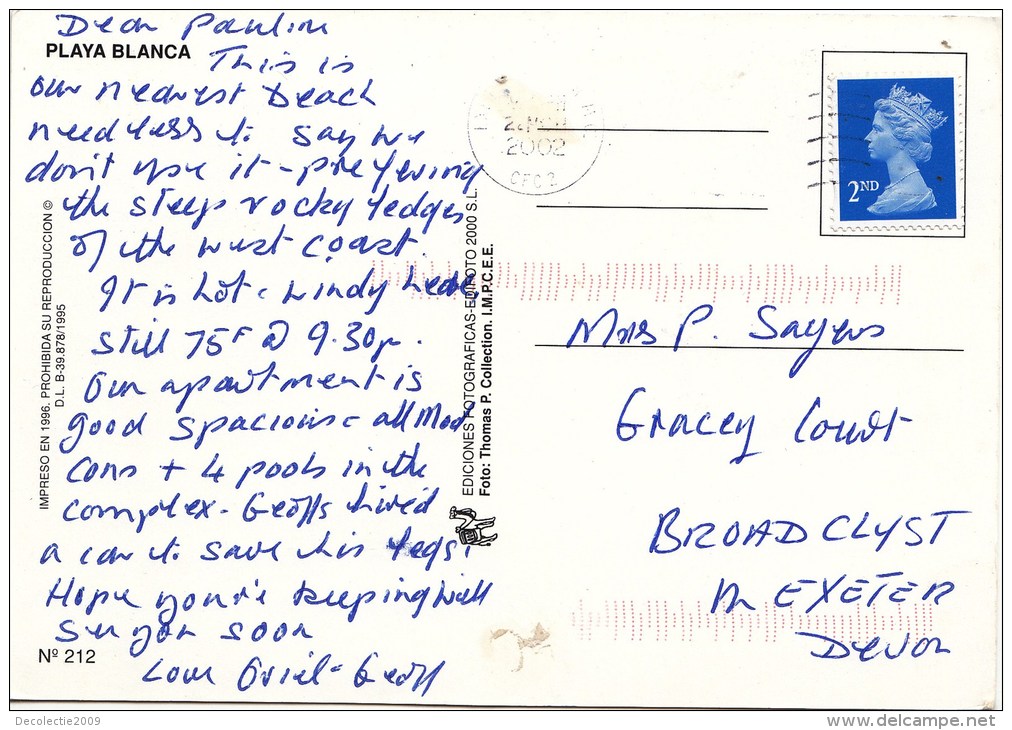 Dear Pauline
PLAYA BLANCA
This is
our nearest beach
needless to say we
don't use it - preferring
the steep rocky ledges
of the west coast.
It is hot & windy here,
still 75F @ 9.30pm.
Our apartment is
good spacious & all Mod
Cons + 4 pools in the
complex - Geoffs hired
a car to save his legs!
Hope you're keeping well
See you soon
Love Oriel & Geoff
Nº 212
IMPRESO EN 1996. PROHIBIDA SU REPRODUCCION ©
D.L. B-39.878/1995
EDICIONES FOTOGRAFICAS-EDIFOTO 2000 S.L.
Foto: Thomas P. Collection. I.M.P.C.E.E.
2002
2ND
Mrs P. Sayers
Gracey Court
BROADCLYST
Nr EXETER
Devon
Decolectie2009
www.delcampe.net